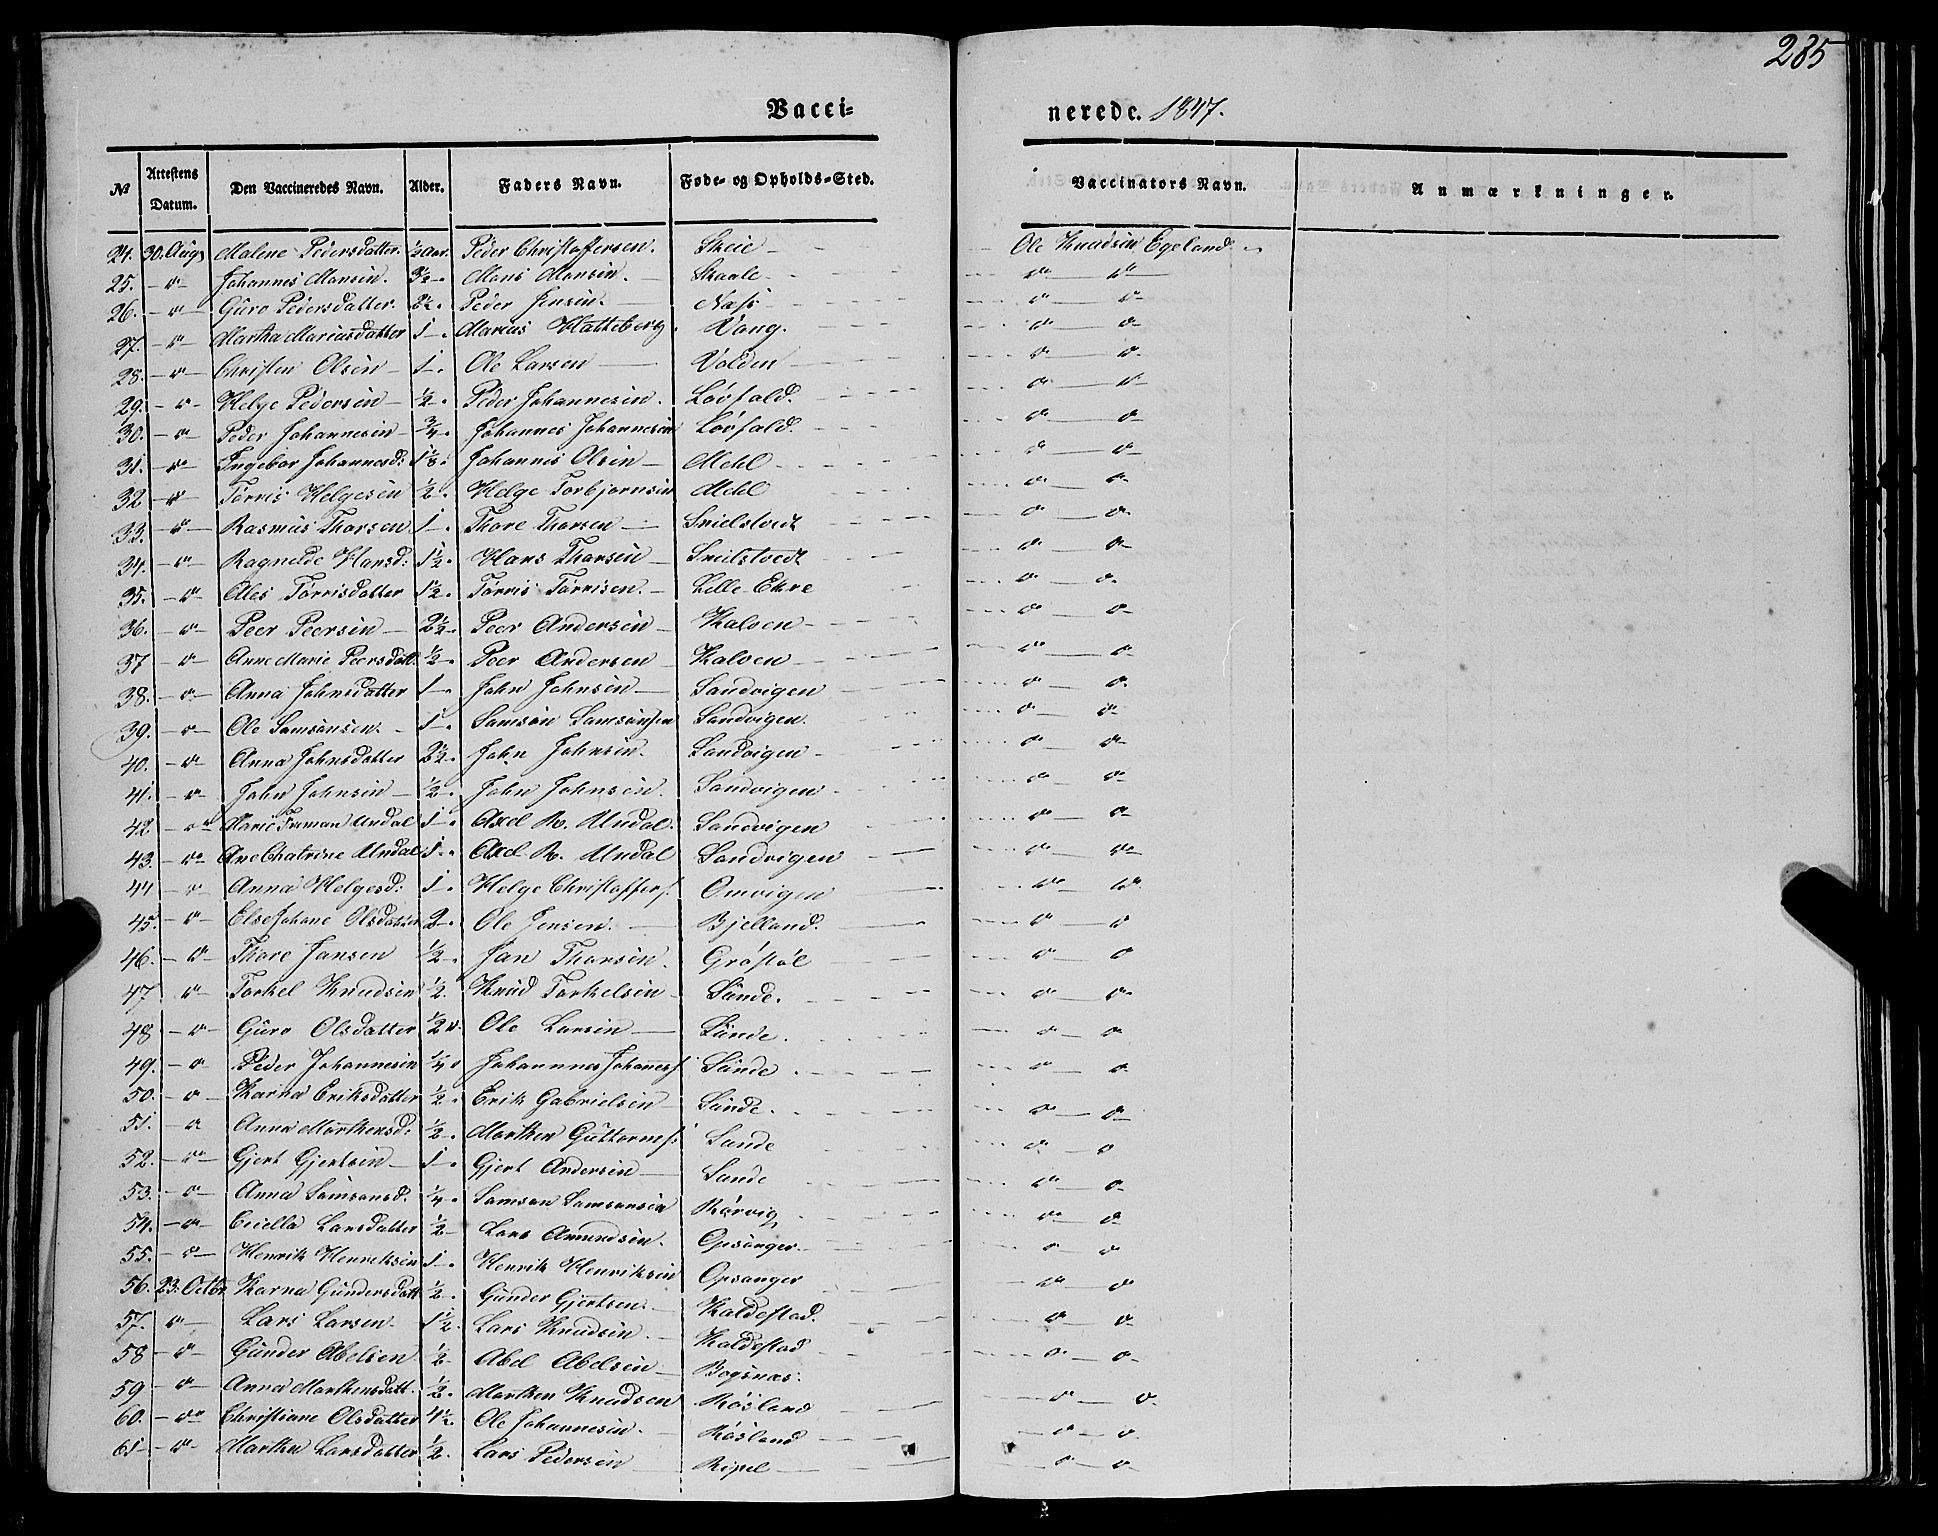 285
Vacci= nerede. 1847.
No Attestens Datum. Den Vaccineredes Navn. Alder. Faders Navn. Føde- og Opholds-Sted. Vaccinators Navn. Anmærkninger.
24. 30. Aug Malene Pedersdatter. 1/2 Aar. Peder Christoffersen. Skeie Ole Knudsen Egeland
25. – " – Johannes Monsen. 3 1/2 Mons Monsen. Skaale " "
26. – " – Guro Pedersdatter. 2 1/2 Peder Jensen. Næss " "
27. – " – Martha Mariasdatter 1 Marius Hatteberg. Vang. " "
28. – " – Christen Olsen 1 Ole Larsen Volden " "
29. – " – Helge Pedersen 1/2 Peder Johannesen. Løvfald. " "
30. – " – Peder Johannesen 3/4 Johannes Johannesen Løvfald. " "
31. – " – Ingebor Johannesd: Johannes Olsen Mehl " "
32 – " – Tørris Helgesen 1/2 Helge Torbjørnsen Mehl " "
33. – " – Rasmus Thorsen 1 Thore Thorsen Snielstvedt " "
34. – " – Ragnilde Hansd: 1 1/2 Hans Thorsen Snielstvedt " "
35. – " – Tørrisdatter 1 1/2 Tørris Tørrisen. Lille Ekre " "
36. – " – Peer Peersen 2 1/2 Peer Andersen Kalven " "
37 – " – Anne Marie Peersdatt. 1/2 Peer Andersen Kalven " "
38. – " – Anna Johnsdatter 1 John Johnsen Sandvigen " "
39. – " – Ole Samsonsen. 1 Samson Samsonsen Sandvigen. " "
40. – " – Anna Johnsdatter 2 1/2 John Johnsen. Sandvigen " "
41. – " – John Johnsen 1/2 John Johnsen. Sandvigen " "
42. – " – Marie Undal 1 Axel R. Undal. Sandvigen " "
43. – " – Ane Chatrine Undal 1 Axel R. Undal Sandvigen " "
44 – " – Anna Helgesd: 1 Helge Christoffers. Omvigen " "
45. – " – Else Johane Olsdatter 2 Ole Jensen. Bjelland. " "
46. – " – Thore Jansen 1/2 Jan Thorsen. Grøstøl " "
47 – " – Torkel Knudsen 1/2. Knud Torkelsen Sunde. " "
48 – " – Guro Olsdatter 1/2 Ole Larsen Sunde. " "
49. – " Peder Johannesen 1/4 Johannes Johanness. Sunde. " "
50. – " – Karna Eriksdatter 1/2 Erik Gabrielsen Sunde. " "
51. – " Anna Morthensd: 1/2 Morthen Guttormss. Sunde " "
52. – " – Gjert Gjertsen 1 Gjert Andersen Sunde " "
53. – " – Anna Samsonsd. 1/4 Samson Samsonsen Rørvig " "
54. – " – Cecilla Larsdatter 1/2 Lars Amundsen. Opsanger " "
55. – " – Henrik Henriksen 1 Henrik Henriksen Opsanger " "
56. 23. Octbr Karna Gundersdatt 1/2 Gunder Gjertsen. Kaldestad. " "
57. " – Lars Larsen 1 1/2 Lars Knudsen. Kaldestad " "
58 – " – Gunder Abelsen 1/2 Abel Abelsen Bogsnæs. " "
59 – " – Anna Morthensdatt. 1/2 Morthen Knudsen Røsland " "
60. – " – Christiane Olsdatter 4 1/2 Ole Johannesen. Røsland " "
61 – " – Marthe Larsdatter 1/2 Lars Pedersen Ripel " "